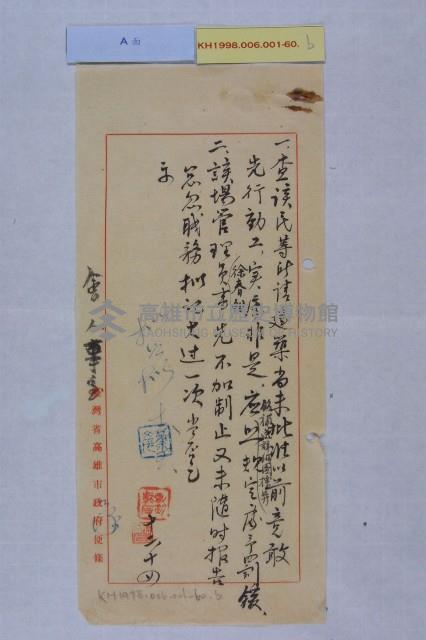 A面
KH1998.006.001-60. b
一、查該民等所請建築尚未批准以前竟敢
先行動工,实属非是,應照規定處予罰鍰、
二、該場管理員徐春
事先不加制止又未隨時報告
怠忽職務拟記大过一次 當否乞
示
人事室
十、十四
台灣省高雄市政府便條
高雄市立歷史博物館
KAOHSIUNG MUSEUM OF HISTORY
KH1998.006.001-60.b